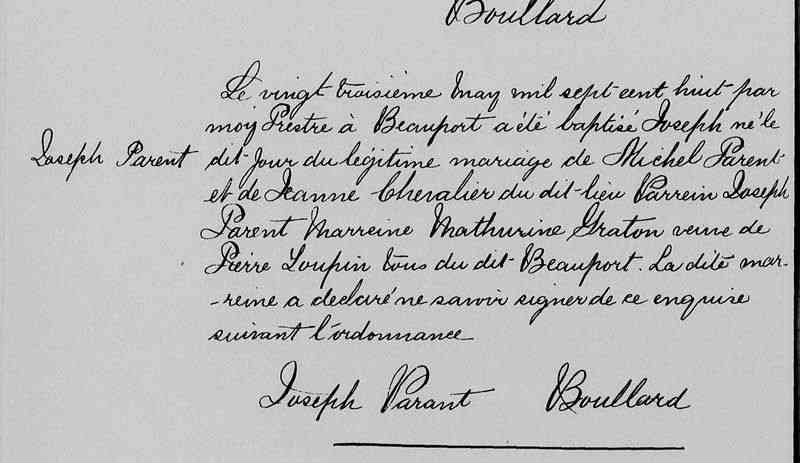 Boullard
Le vingt troisiéme May mil sept cent huit par
moy Prestre à Beauport a été baptisé Joseph né le
Joseph Parent
dit Jour du légitime mariage de Michel Parent
et de Jeanne Chevalier du dit-lieu Parrein Joseph
Parent Marreine Mathurine Graton veuve de
Pierre Loupin tous du dit Beauport. La dite mar-
-reine a declaré ne savoir signer de ce enquise
suivant l'ordonnance
Joseph Parant Boullard